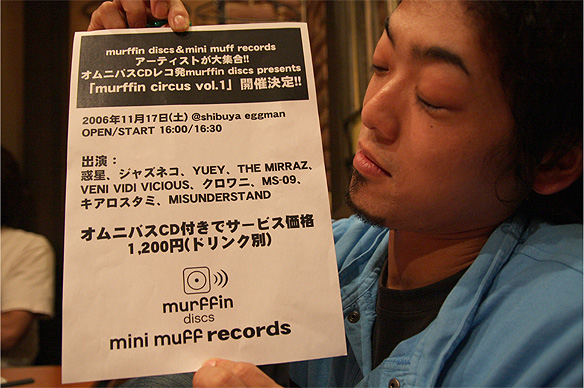 murffin discs&mini muff records
アーティストが大集合!!
オムニバスCDレコ発murffin discs presents
「murffin circus vol.1」開催決定!!
2006年11月17日(土) @shibuya eggman
OPEN/START 16:00/16:30
出演：
惑星、ジャズネコ、YUEY、THE MIRRAZ、
VENI VIDI VICIOUS、クロワニ、MS-09、
キアロスタミ、MISUNDERSTAND
オムニバスCD付きでサービス価格
1,200円(ドリンク別)
murffin
discs
mini muff records